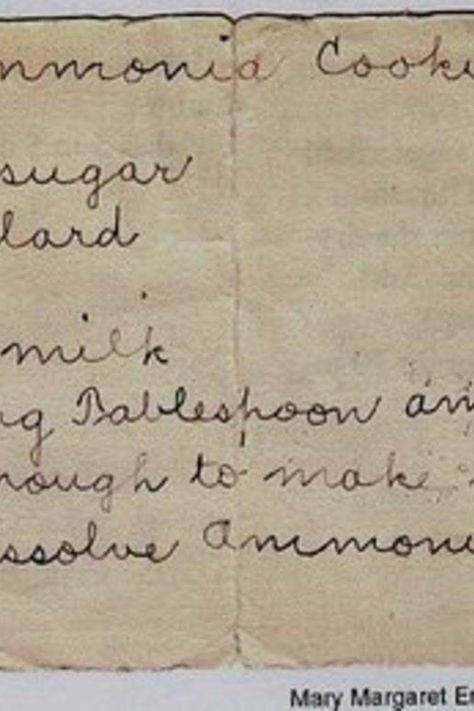 mmonia Cooki
sugar
lard
milk
ng Tablespoon am
nough to make
issolve Ammoni
Mary Margaret E